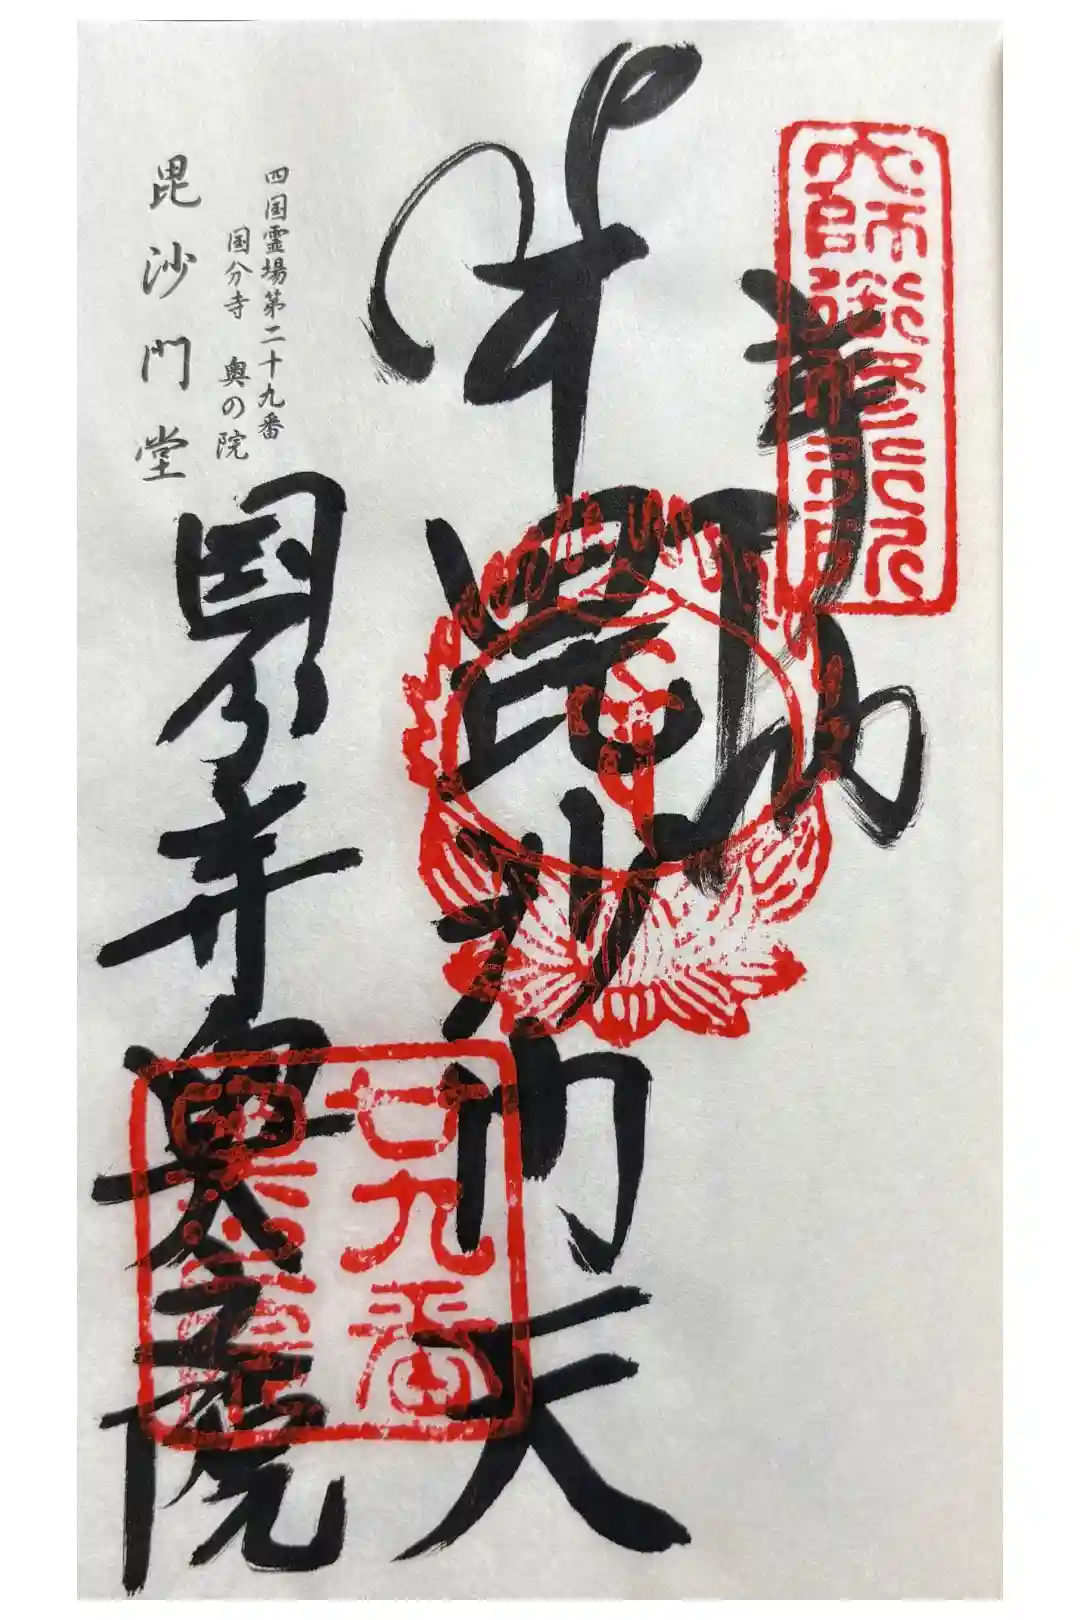 奉拝
毘沙門天
国分寺奥之院
四国霊場第二十九番
国分寺 奥の院
毘沙門堂
廿九番
奥之院